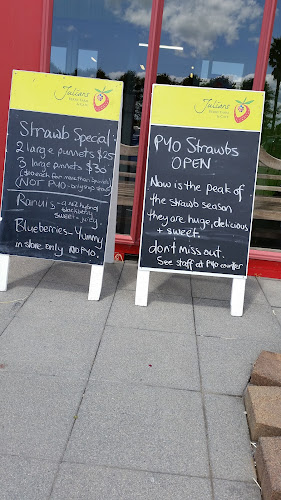 Julians
Berry Farm
& Café
Strawb Special:
2 large punnets $25
3 large punnets $30
(NOT PYO - only in store)
Ranui's - a nz hybrid
blackberry
sweet + juicy
Blueberries - Yummy
in store only NO PYO.
Julians
Berry Farm
& Café
PYO Strawbs
OPEN
Now is the peak of
the strawb season
they are huge, delicious
+ sweet.
don't miss out.
See staff at PYO counter